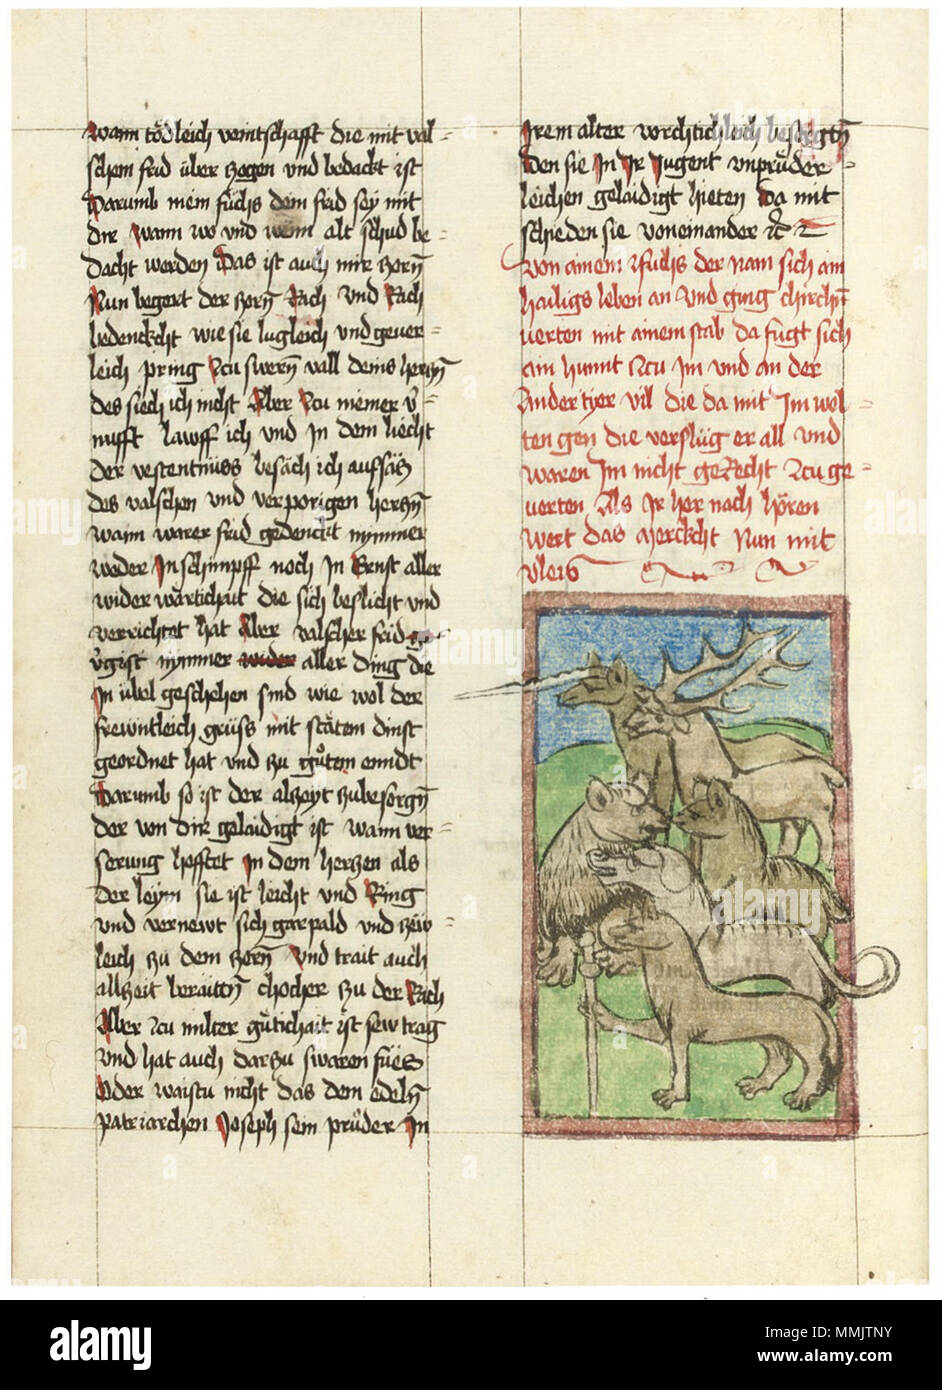 wann tödleich veintschafft die mit val=
schem frid über zogen und bedackt ist
Darumb mein fuchs dem frid sey mit
dir wann wo vnd wenn alt schuld be=
dacht werden Das ist auch mir zorn
Nun begert der zorn Rach vnd Rach
bedenckcht wie sie lugleich vnd gever=
leich pring Zcu swern vall deins herczn
des siech ich nicht Aber Zcu niemer v=
nufft lawff ich vnd in dem liecht
der vestentnüss besäch ich aufsäs
des valschen vnd verporigen herczn
wann warer frid gedenckt nymmer
weder In schimpff noch In Ernst aller
wider wärtichait die sich beslicht vnd
verrichtet hat Aber valscher frid
nymmer wider aller ding die
In übel geschehen sind wie wol der
frewntleich grüss mit stätem dinst
geordnet hat vnd zu gutem enndt
Darumb so ist der alzeyt zubesorgn
der von dir gelaidigt ist wann ver=
serung hefftet In dem herczen als
der leym sie ist leicht vnd Ring
vnd vernewt sich gar pald vnd
leich zu dem zorn vnd trait auch
allzeit beraittn chocher zu der Rach
Aber Zcu milter gütichait ist sew trag
vnd hat auch darzu swaren füës
Oder waistu nicht das dem edeln
Patriarchen Joseph sein prüder In
Irem alter vorchtichleich besorgtn
Den sie In Ir Jugent vnprüder=
leichen gelaidigt hieten Da mit
schieden sie voneinander
Von ainem Fuchs der nam sich ain
hailigs leben an vnd ging chirchn
uerten mit ainem stab da fügt sich
ain hunnt Zcu Im vnd an der
Ander tyer vil die da mit Im wol=
ten gen die verslüg er all vnd
waren Im nicht gerecht Zcu ge=
uerten Als Ir her nach hören
wert das Merckcht Nun mit
vleis
alamy
Image ID: MMJTNY
www.alamy.com